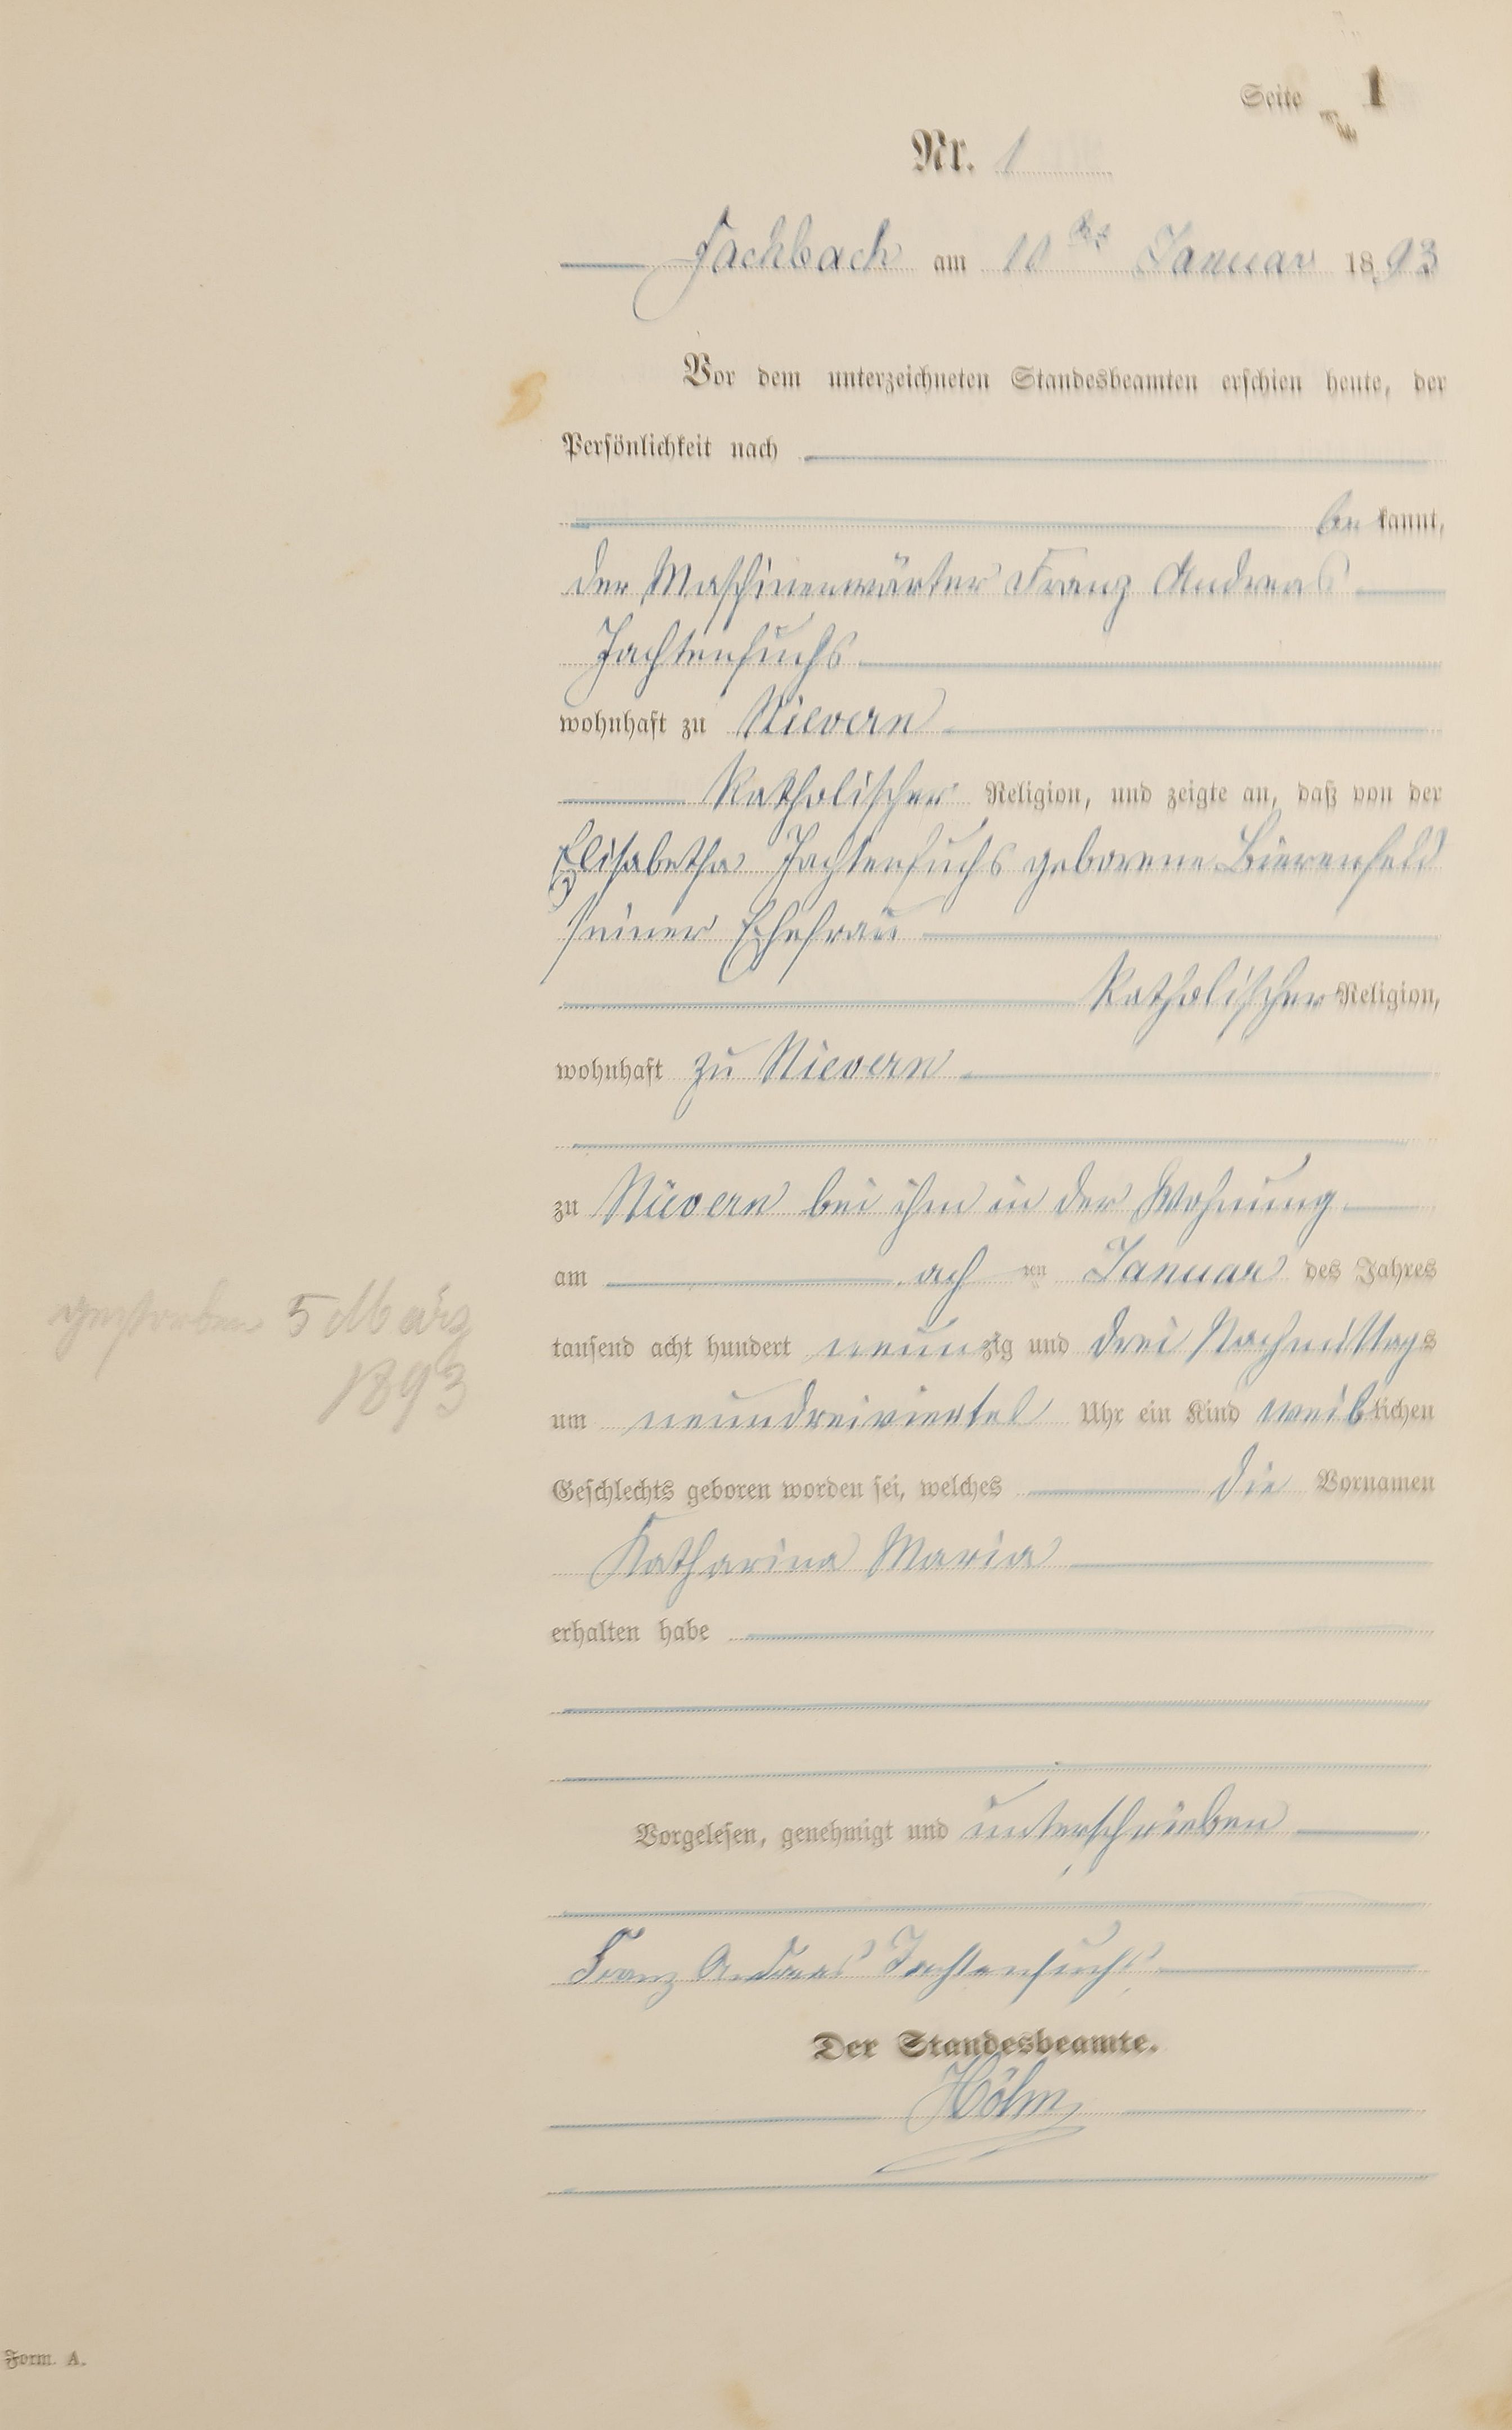 Seite 1
Nr. 1
Fachbach am 10ten Januar 1893
Vor dem unterzeichneten Standesbeamten erschien heute, der
Persönlichkeit nach
bekannt,
der Maschinenwärter Franz Andreas
Jachtenfuchs
wohnhaft zu Nievern
Katholischer Religion, und zeigte an, daß von der
Elisabetha Jachtenfuchs geborene Bierenfeld
seiner Ehefrau
Katholischer Religion,
wohnhaft zu Nievern
zu Nievern bei ihm in der Wohnung
am achten Januar des Jahres
tausend acht hundert neunzig und drei Nachmittags
um neundreiviertel Uhr ein Kind weiblichen
Geschlechts geboren worden sei, welches die Vornamen
Katharina Maria
erhalten habe
Vorgelesen, genehmigt und unterschrieben
Franz Andreas Jachtenfuchs
Der Standesbeamte.
gestorben 5 März
1893
Form. A.